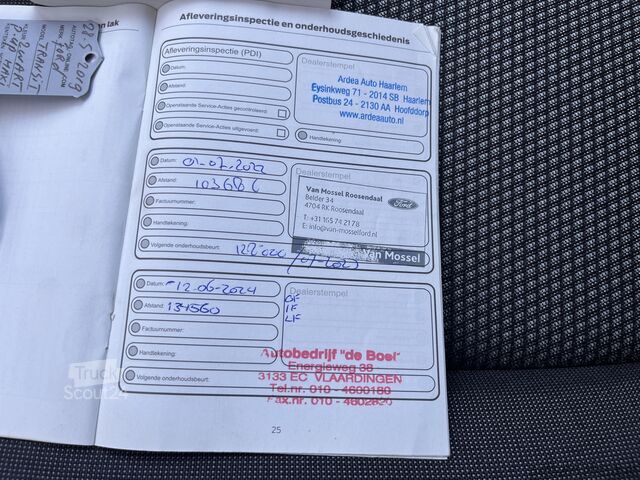 en lak
28-5-2019
FORD
TRANSIT
ZWART
Afleveringsinspectie en onderhoudsgeschiedenis
Afleveringsinspectie (PDI)
Datum:
Afstand:
Openstaande Service-Acties gecontroleerd:
Openstaande Service-Acties uitgevoerd:
Dealerstempel
Ardea Auto Haarlem
Eysinkweg 71 - 2014 SB Haarlem
Postbus 24 - 2130 AA Hoofddorp
www.ardeaauto.nl
Handtekening:
Datum: 01-07-2022
Afstand: 103686
Factuurnummer:
Handtekening:
Volgende onderhoudsbeurt:
Dealerstempel
Van Mossel Roosendaal
Belder 34
4704 RK Roosendaal
T: +31 165 74 21 78
E: info@van-mosselford.nl
Ford
Van Mossel
Datum: 12-06-2024
Afstand: 134560
Factuurnummer:
Handtekening:
Volgende onderhoudsbeurt:
Dealerstempel
OF
IF
LF
Autobedrijf "de Boei"
Energieweg 38
3133 EC VLAARDINGEN
Tel.nr. 010 - 4600180
Fax.nr. 010 - 4602820
25
Truck
Scout24